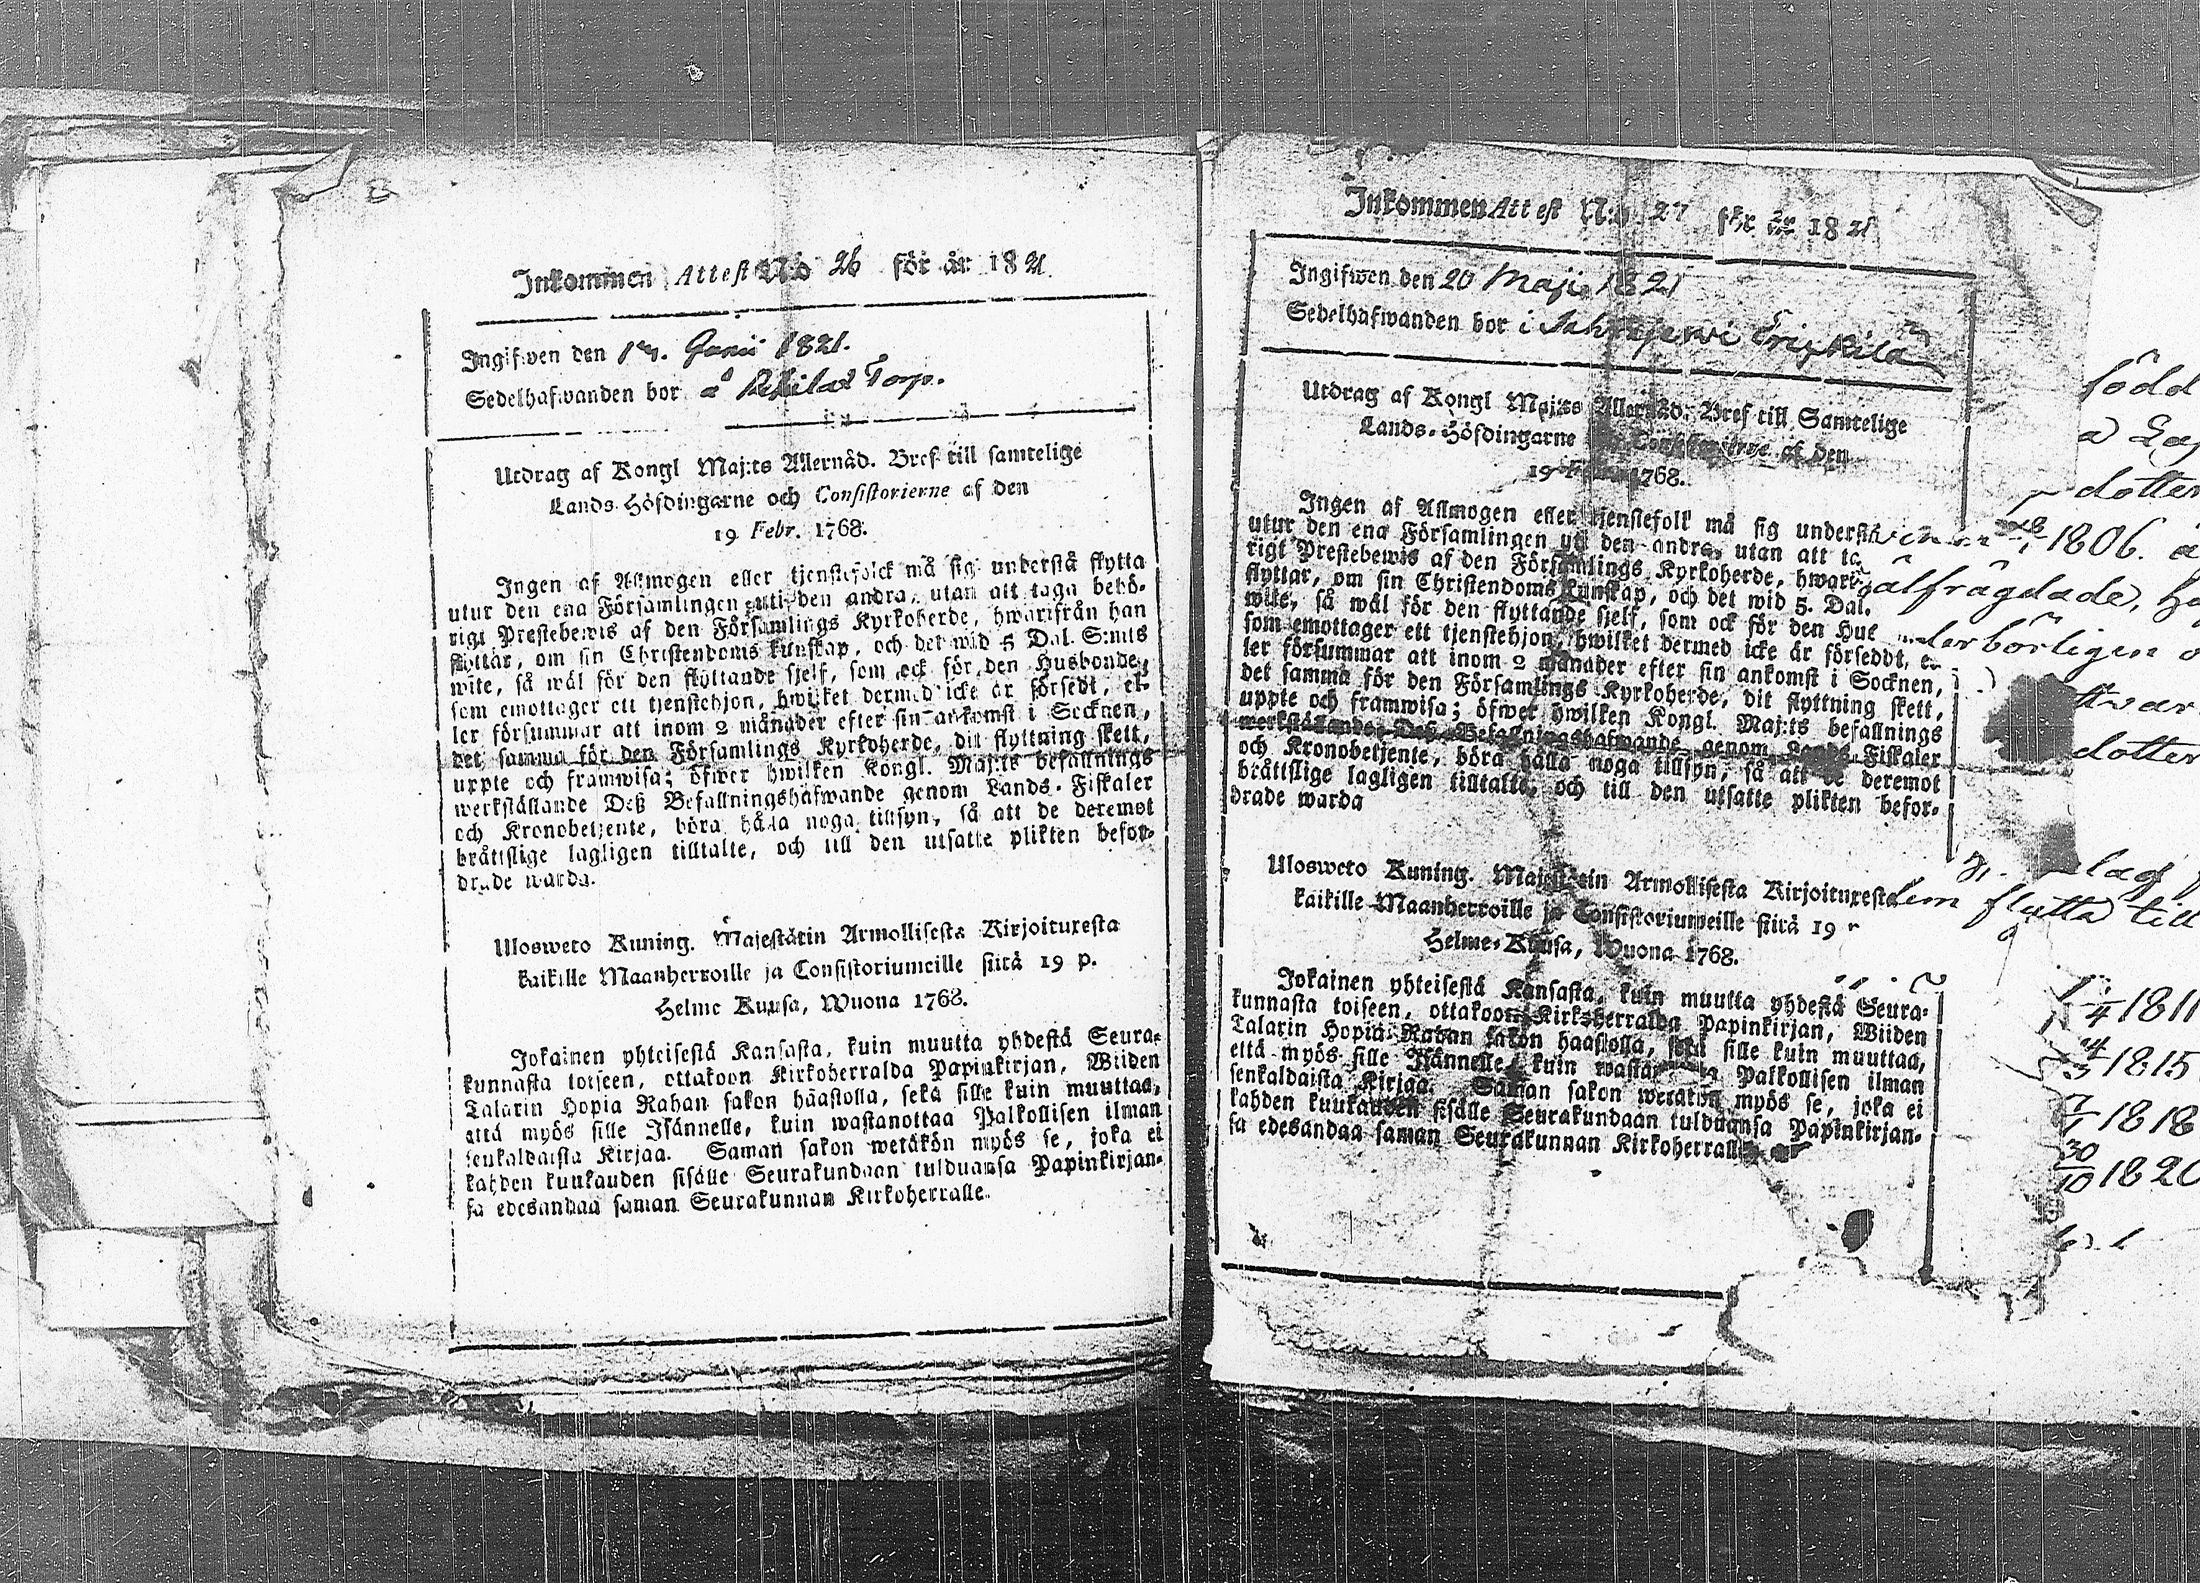 Inkommen Attest No 26 för år 1821.
Ingifwen den 17. Junii 1821.
Sedelhafwanden bor å Torp.
Utdrag af Kongl Maj:ts Allernåd. Bref till samtelige
Lands-Höfdingarne och Consistorierne af den
19 Febr. 1768.
Ingen af Allmogen eller tjenstefolck må sig understå flytta
utur den ena Församlingen uti den andra, utan att taga behö-
rigt Prestebewis af den Församlings Kyrkoherde, hwarifrån han
flyttar, om sin Christendoms kunskap, och det wid 5 Dal. S:mts
wite, så wäl för den flyttande sjelf, som ock för den Husbonde,
som emottager ett tjenstehjon, hwilket dermed icke är försedt, el-
ler försummar att inom 2 månader efter sin ankomst i Socknen,
det samma för den Församlings Kyrkoherde, dit flyttning skett,
uppte och framwisa; öfwer hwilken Kongl. Maj:ts befallnings
werkställande Deß Befallningshafwande genom Lands-Fiskaler
och Kronobetjente, böra hålla noga tillsyn, så att de deremot
bråttslige lagligen tilltalte, och till den utsatte plikten befor-
drade warda.
Ulosweto Kuning. Majestätin Armollisesta Kirjoituxesta
kaikille Maanherroille ja Consistoriumeille siitä 19 p.
Helme Kuusa, Wuona 1768.
Jokainen yhteisestä Kansasta, kuin muutta yhdestä Seura-
kunnasta toiseen, ottakoon Kirkoherralda Papinkirjan, Wiiden
Talarin Hopia Rahan sakon haastolla, sekä sille kuin muuttaa,
että myös sille Isännelle, kuin wastanottaa Palkollisen ilman
senkaldaista Kirjaa. Saman sakon wetäkön myös se, joka ei
kahden kuukauden sisälle Seurakundaan tulduansa Papinkirjan-
sa edesandaa saman Seurakunnan Kirkoherralle.
Inkommen Attest N:o 27 för år 1821
Ingifwen den 20 Maji 1821
Sedelhafwanden bor i
Utdrag af Kongl Maj:ts Allernåd. Bref till Samtelige
Lands-Höfdingarne och Consistorierne af den
19 Febr. 1768.
Ingen af Allmogen eller tjenstefolk må sig understå
utur den ena Församlingen uti den andra, utan att
rigt Prestebewis af den Församlings Kyrkoherde,
flyttar, om sin Christendoms kunskap, och det wid 5. Dal.
wite, så wäl för den flyttande sjelf, som ock för den
som emottager ett tjenstehjon, hwilket dermed icke är förseddt,
ler försummar att inom 2 månader efter sin ankomst i Socknen,
det samma för den Församlings Kyrkoherde, dit flyttning skett,
uppte och framwisa; öfwer hwilken Kongl. Maj:ts befallnings
werkställande Deß Befallningshafwande genom Lands-Fiskaler
och Kronobetjente, böra hålla noga tillsyn, så att de deremot
bråttslige lagligen tilltalte, och till den utsatte plikten befor-
drade warda
Ulosweto Kuning. Majestätin Armollisesta Kirjoituxesta
kaikille Maanherroille ja Consistoriumeille siitä 19
Helme-Kuusa, Wuona 1768.
Jokainen yhteisestä Kansasta, kuin muutta yhdestä Seura-
kunnasta toiseen, ottakoon Kirkoherralda Papinkirjan, Wiiden
Talarin Hopia Rahan sakon haastolla, sekä sille kuin muuttaa,
että myös sille Isännelle, kuin Palkollisen ilman
senkaldaista Kirjaa. Saman sakon wetäkön myös se, joka ei
kahden kuukauden sisälle Seurakundaan tulduansa Papinkirjan-
sa edesandaa saman Seurakunnan Kirkoherralle
född
dotter
1806.
dotter
flytta till
1811
1815
1818
30/10 1820